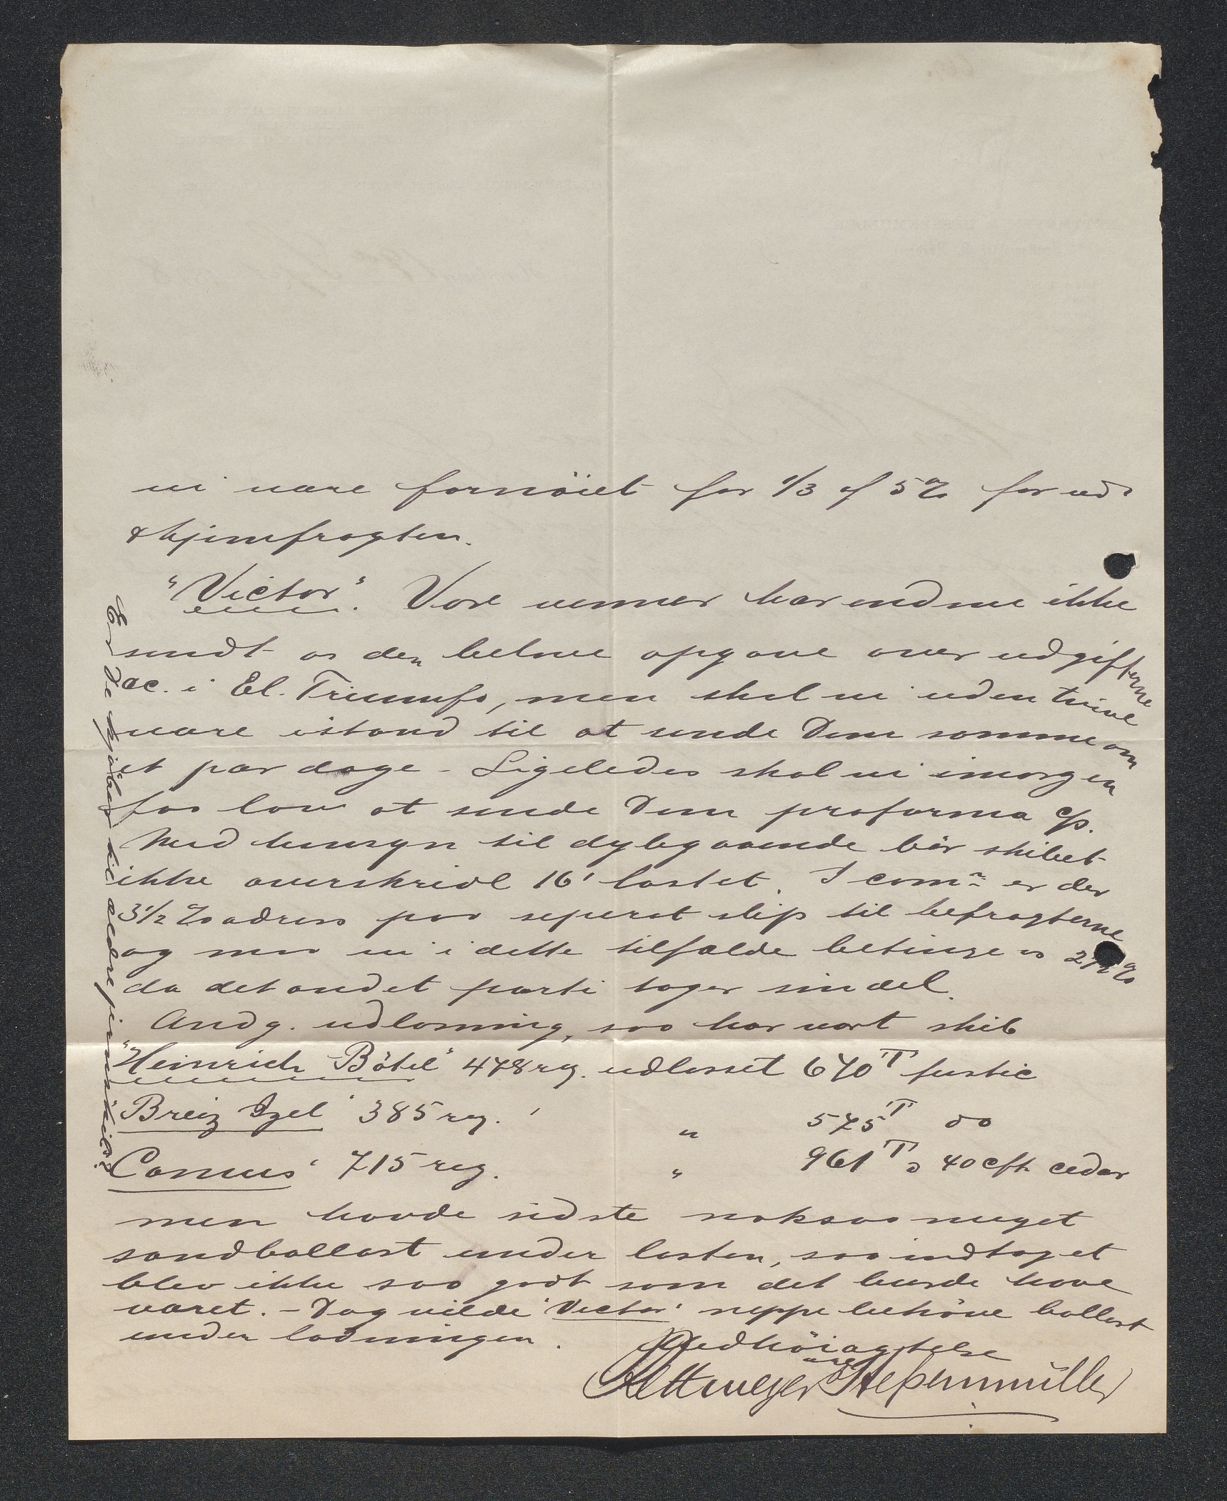 vi være fornöiet for 1/3 of 5% for ud
& hjemfragten.
"Victor". Vore venner har endnu ikke
sendt os den belovede opgave over udgifterne
&c. i El. Triumfo, men skal vi uden tvivl
være istand til at sende Dem samme om
et par dage - Ligeledes skal vi imorgen
faa lov at sende Dem proforma c/p.
Med hensyn til dybgaaende bör skibet
ikke overskride 16' lastet. I comn er der
3 1/2 % adress paa seperat slip til befragterne
og maa vi i dette tilfælde betinge os 2 1/2 %
da det andet parti tager sin del.
Andg. udlosning, saa har vort skib
"Heinrich Bötel" 478 rg. udlosset 670 T fustic
Breiz Izel 385 rg. " 575 T do
Comus 715 reg. " 961 T & 40 cft cedar
men havde sidste noksaa meget
sandballast under lasten, saa indtaget
blev ikke saa godt som det burde have
været. - Dog vilde 'Victor' neppe behöve ballast
under ladningen.
Med höiagtelse
Er De kjöber til ældre jernskib?